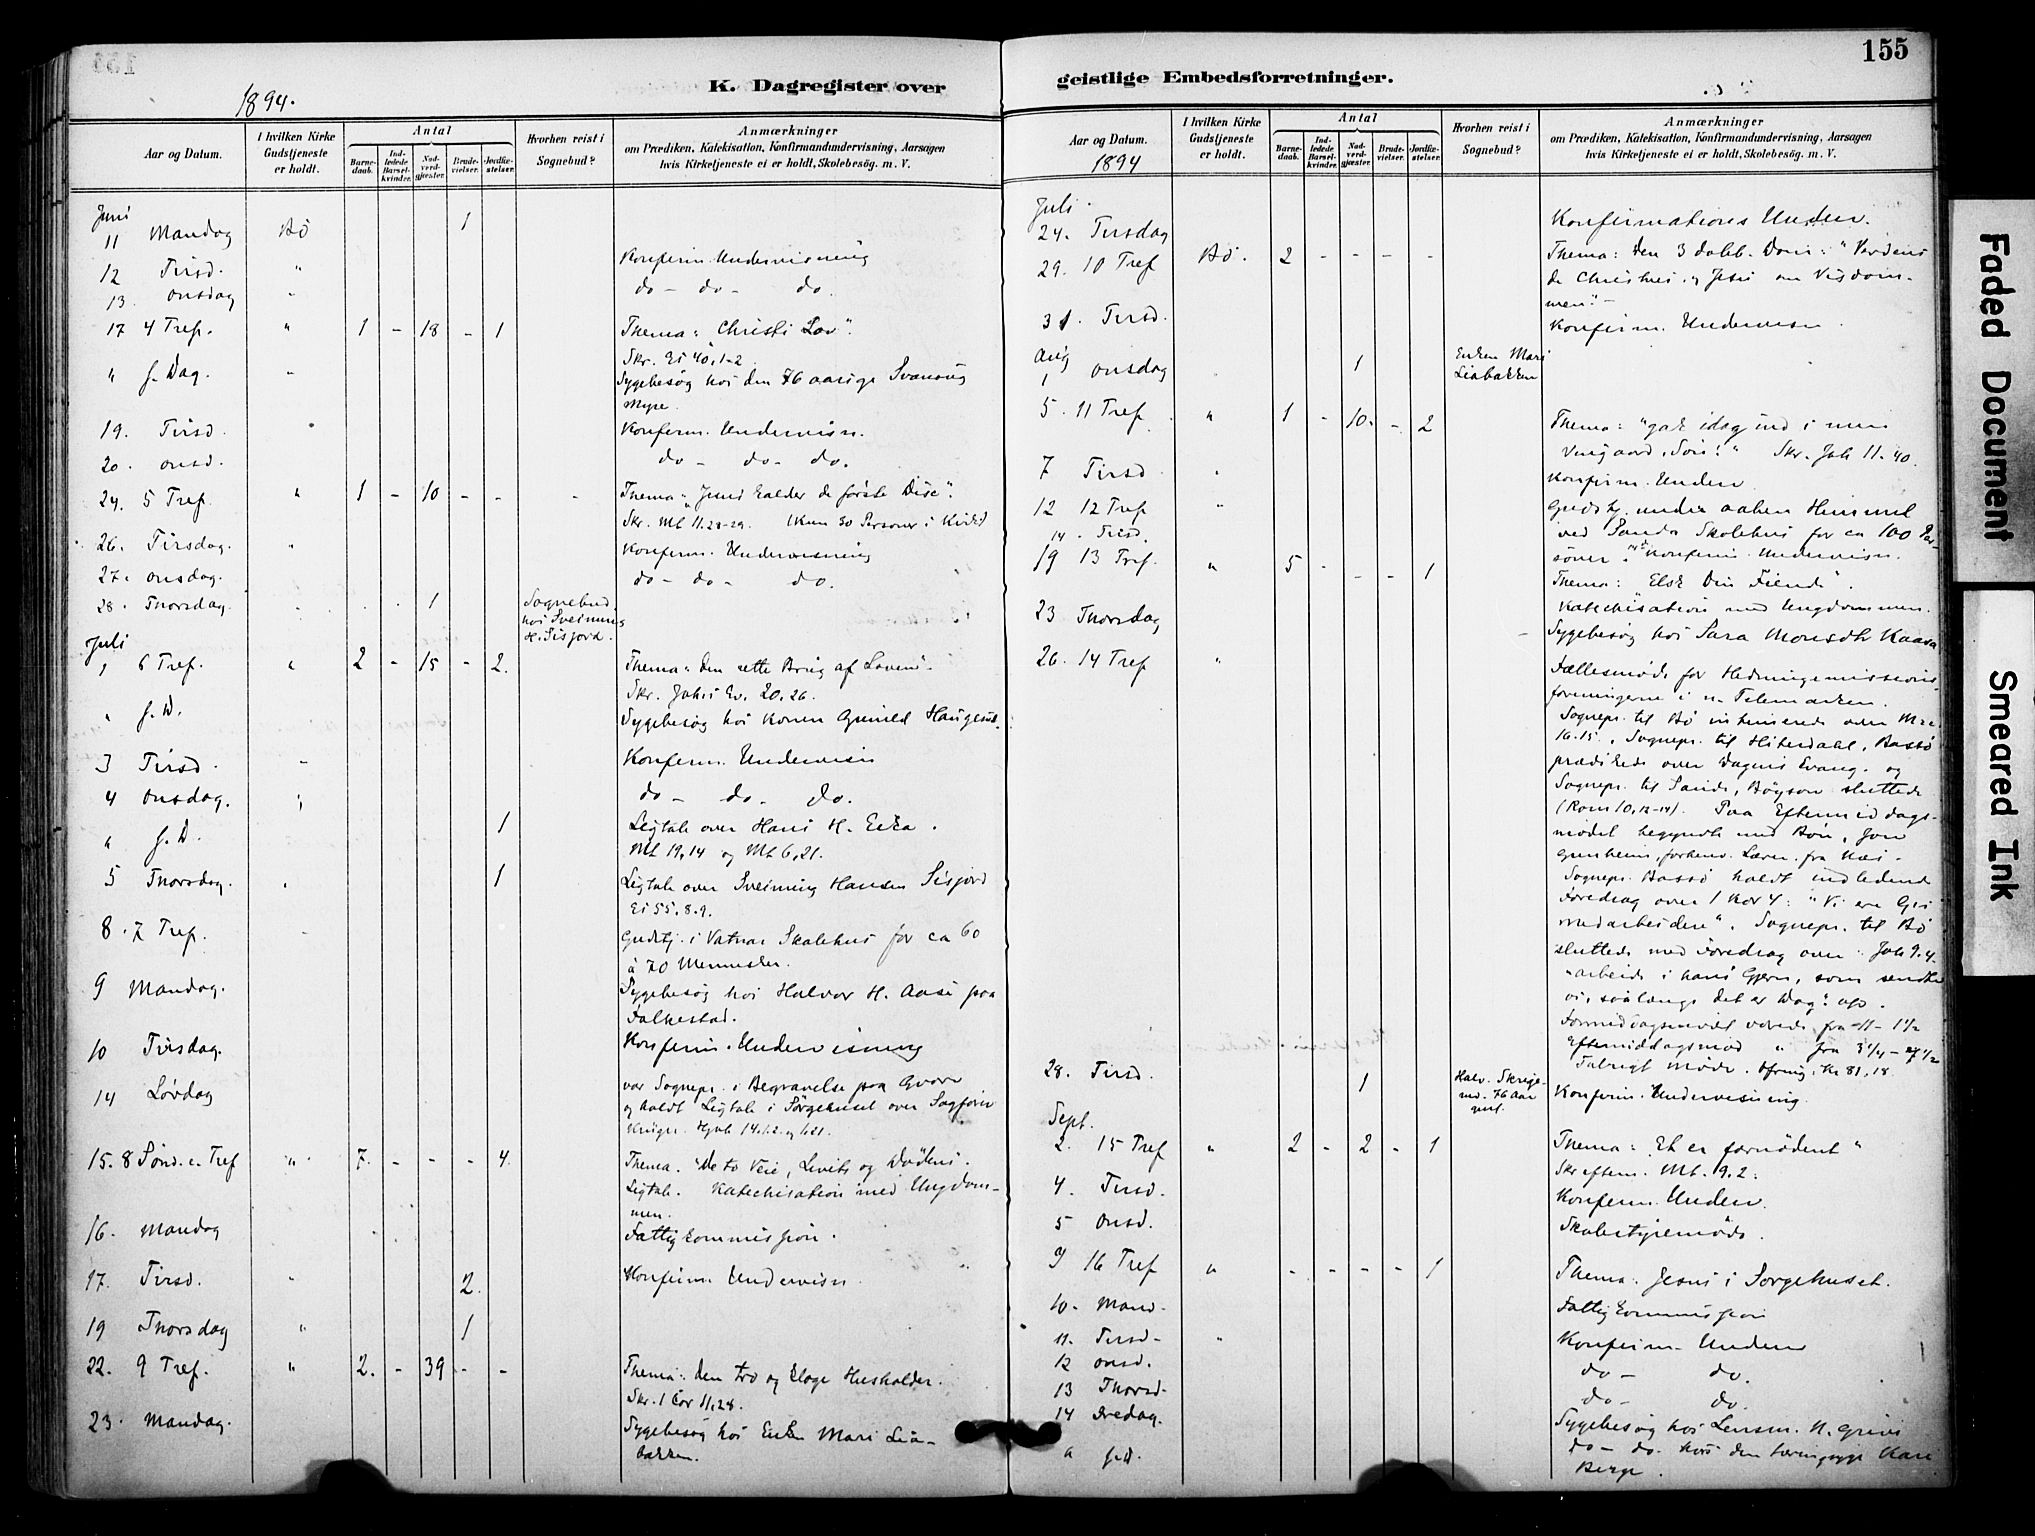 155
K. Dagregister over
geistlige Embedsforretninger.
1894.
Aar og Datum.
I hvilken Kirke Gudstjeneste er holdt.
Antal
Barnedaab.
Indledede Barselkvinder.
Nadverdgjæster.
Brudevielser.
Jordfæstelser.
Hvorhen reist i Sognebud?
Anmærkninger
om Prædiken, Katekisation, Konfirmandundervisning, Aarsagen
hvis Kirketjeneste ei er holdt, Skolebesög. m. V.
Juni
11 Mandag Bö 1
12 Tirsd. " Konfirm. Undervisning
13. Onsdag " do - do - do.
17 4 Tref. " 1 - 18 - 1 Thema: "Christi Lov".
Skr. Es 40,1-2
" s. Dag. " Sygebesøg hos den 76 aarige
Myre.
19. Tirsd. Konfirm. Undervisn.
20. Onsd. do - do - do.
24. 5 Tref. " 1 - 10 - - - Thema: "Jesus kalder de første Disc".
Skr. Mt 11.28-29. (Kun 30 Personer i Kirke)
26. Tirsdag. " Konfirm. Undervisning
27. Onsdag. do - do - do.
28. Thorsdag. 1 Sognebud
hos Sveinung
H. Sisjord.
Juli
1 6 Tref. " 2 - 15 - 2. Thema: Den rette Brug af Loven.
Skr. Johs Ev. 20,26.
" s. D. Sygebesøg hos Konen Gunild
3 Tirsd. " Konfirm. Undervisn
4 Onsdag. " do - do - do.
" s. D. 1 Ligtale over Hans H. Eika.
Mt 19,14 og Mt 6,21.
5 Thorsdag. " 1 Ligtale over Sveinung Hansen Sisjord
Es 55.8.9.
8. 7 Tref. Gudstj. i Vatnar Skolehus for ca 60
à 70 Mennesker.
9 Mandag. Sygebesøg hos Halvor H. Aase paa
Falkestad.
10 Tirsdag. Konfirm. Undervisning
14 Lørdag var Sognepr. i Begravelse paa Gvarv
og holdt Ligtale i Sørgehuset over Sagfører
Krüger. Hjob 14.1.2. og 1.21.
15. 8 Sønd. e. Tref " 7. - - - 4. Thema: "De to Veie, Livets og Dødens.
Ligtale. Katechisation med Ungdom-
men.
16. Mandag Fattigkommission.
17. Tirsd. " 2. Konfirm. Undervisn
19 Thorsdag " 1
22. 9 Tref. " 2. - 39 - - Thema: den tro og kloge Husholder.
Skr. 1 Cor 11,28.
23. Mandag. Sygebesøg hos Enken Mari Lia-
bakken.
Aar og Datum.
1894
I hvilken Kirke Gudstjeneste er holdt.
Antal
Barnedaab.
Indledede Barselkvinder.
Nadverdgjæster.
Brudevielser.
Jordfæstelser.
Hvorhen reist i Sognebud?
Anmærkninger
om Prædiken, Katekisation, Konfirmandundervisning, Aarsagen
hvis Kirketjeneste ei er holdt, Skolebesög. m. V.
Juli
24. Tirsdag Konfirmations Underv.
29. 10 Tref Bö. 2 - - - - Thema: Den 3 dobb. Dom: "Verdens
men."
31. Tirsd. Konfirm. Undervisn.
Aug
1 Onsdag 1 Enken Mari
Liabakken
5. 11 Tref " 1 - 10. - 2 Thema: "gak idag ind i min
Viingaard, Søn!" Skr. Joh 11.40.
7 Tirsd " Konfirm. Underv
12 12 Tref " Gudstj. under aaben Himmel
ved Sanda Skolehus for ca 100 Per-
14. Tirsd. soner. Konfirm. Undervisn.
19 13 Tref. " 5 - - - 1 Thema: "Elsk Din Fiende".
Katechisation med Ungdommen.
23 Thorsdag Sygebesøg hos Sara Monsdtr Kaasa
26. 14 Tref " Fællesmøde for Hedningemissions-
foreningerne i n. Telemarken.
Sognepr. til Bö intimerede over Mrc
16.15. Sognepr. til Hiterdahl, Bassö
prædikede over Dagens Evang. og
Sognepr. til Sande, Böyson sluttede
(Rom 10,12-14). Paa Eftermiddags-
mødet begyndte med Bön, Jon
Sognepr. Bassö holdt indledende
Foredrag over 1 Kor 4: "Vi ere Gs
medarbeidere". Sognepr. til Bö
sluttede med Foredrag over Joh 9.4.
"arbeide i hans Gjern, som sendte
os, saalænge det er Dag". osv.
Formiddagsmødet varede fra 11 - 1½
Eftermiddagsmød " fra 3¼ - 7½
Talrigt Møde. Ofring. Kr 81,18.
28. Tirsd. 1 Halv.
76 Aar
Konfirm. Undervisning.
Sept.
2. 15 Tref " 2 - 2 - 1 Thema: "Et er fornødent"
Skriftem. Mt. 9.2:
4. Tirsd. Konfirm. Underv.
5 Onsd. Skolestyremøde.
9 16 Tref " - - - - 1 Thema: Jesus i Sorgehuset.
10. Mand. Fattigkommission
11. Tirsd. " Konfirm. Underv
12 Onsd. do - do.
13 Thorsd. do - do.
14 Fredag. Sygebesøg hos Lensm. N.
" s. D. do - do. hos den tæringssyge Kari
Berge.
Faded Document
Smeared Ink